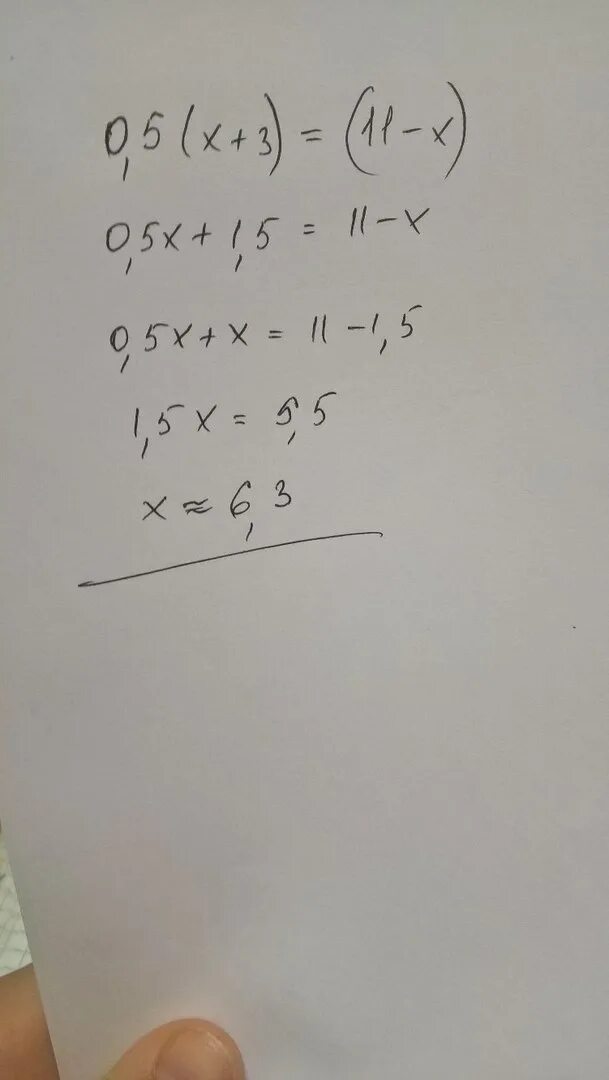 0,5(x+3)=(11-x)
0,5x+1,5=11-x
0,5x+x=11-1,5
1,5x=9,5
x≈6,3